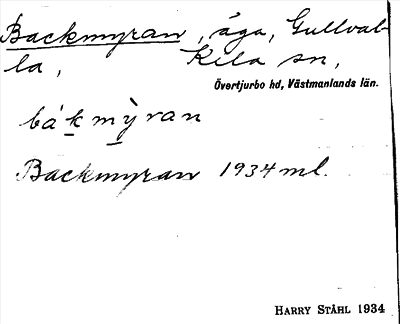 Backmyran, äga, Gullval-
la, Kila sn,
Övertjurbo hd, Västmanlands län.
bákmỳran
Backmyran 1934 ml.
HARRY STÅHL 1934